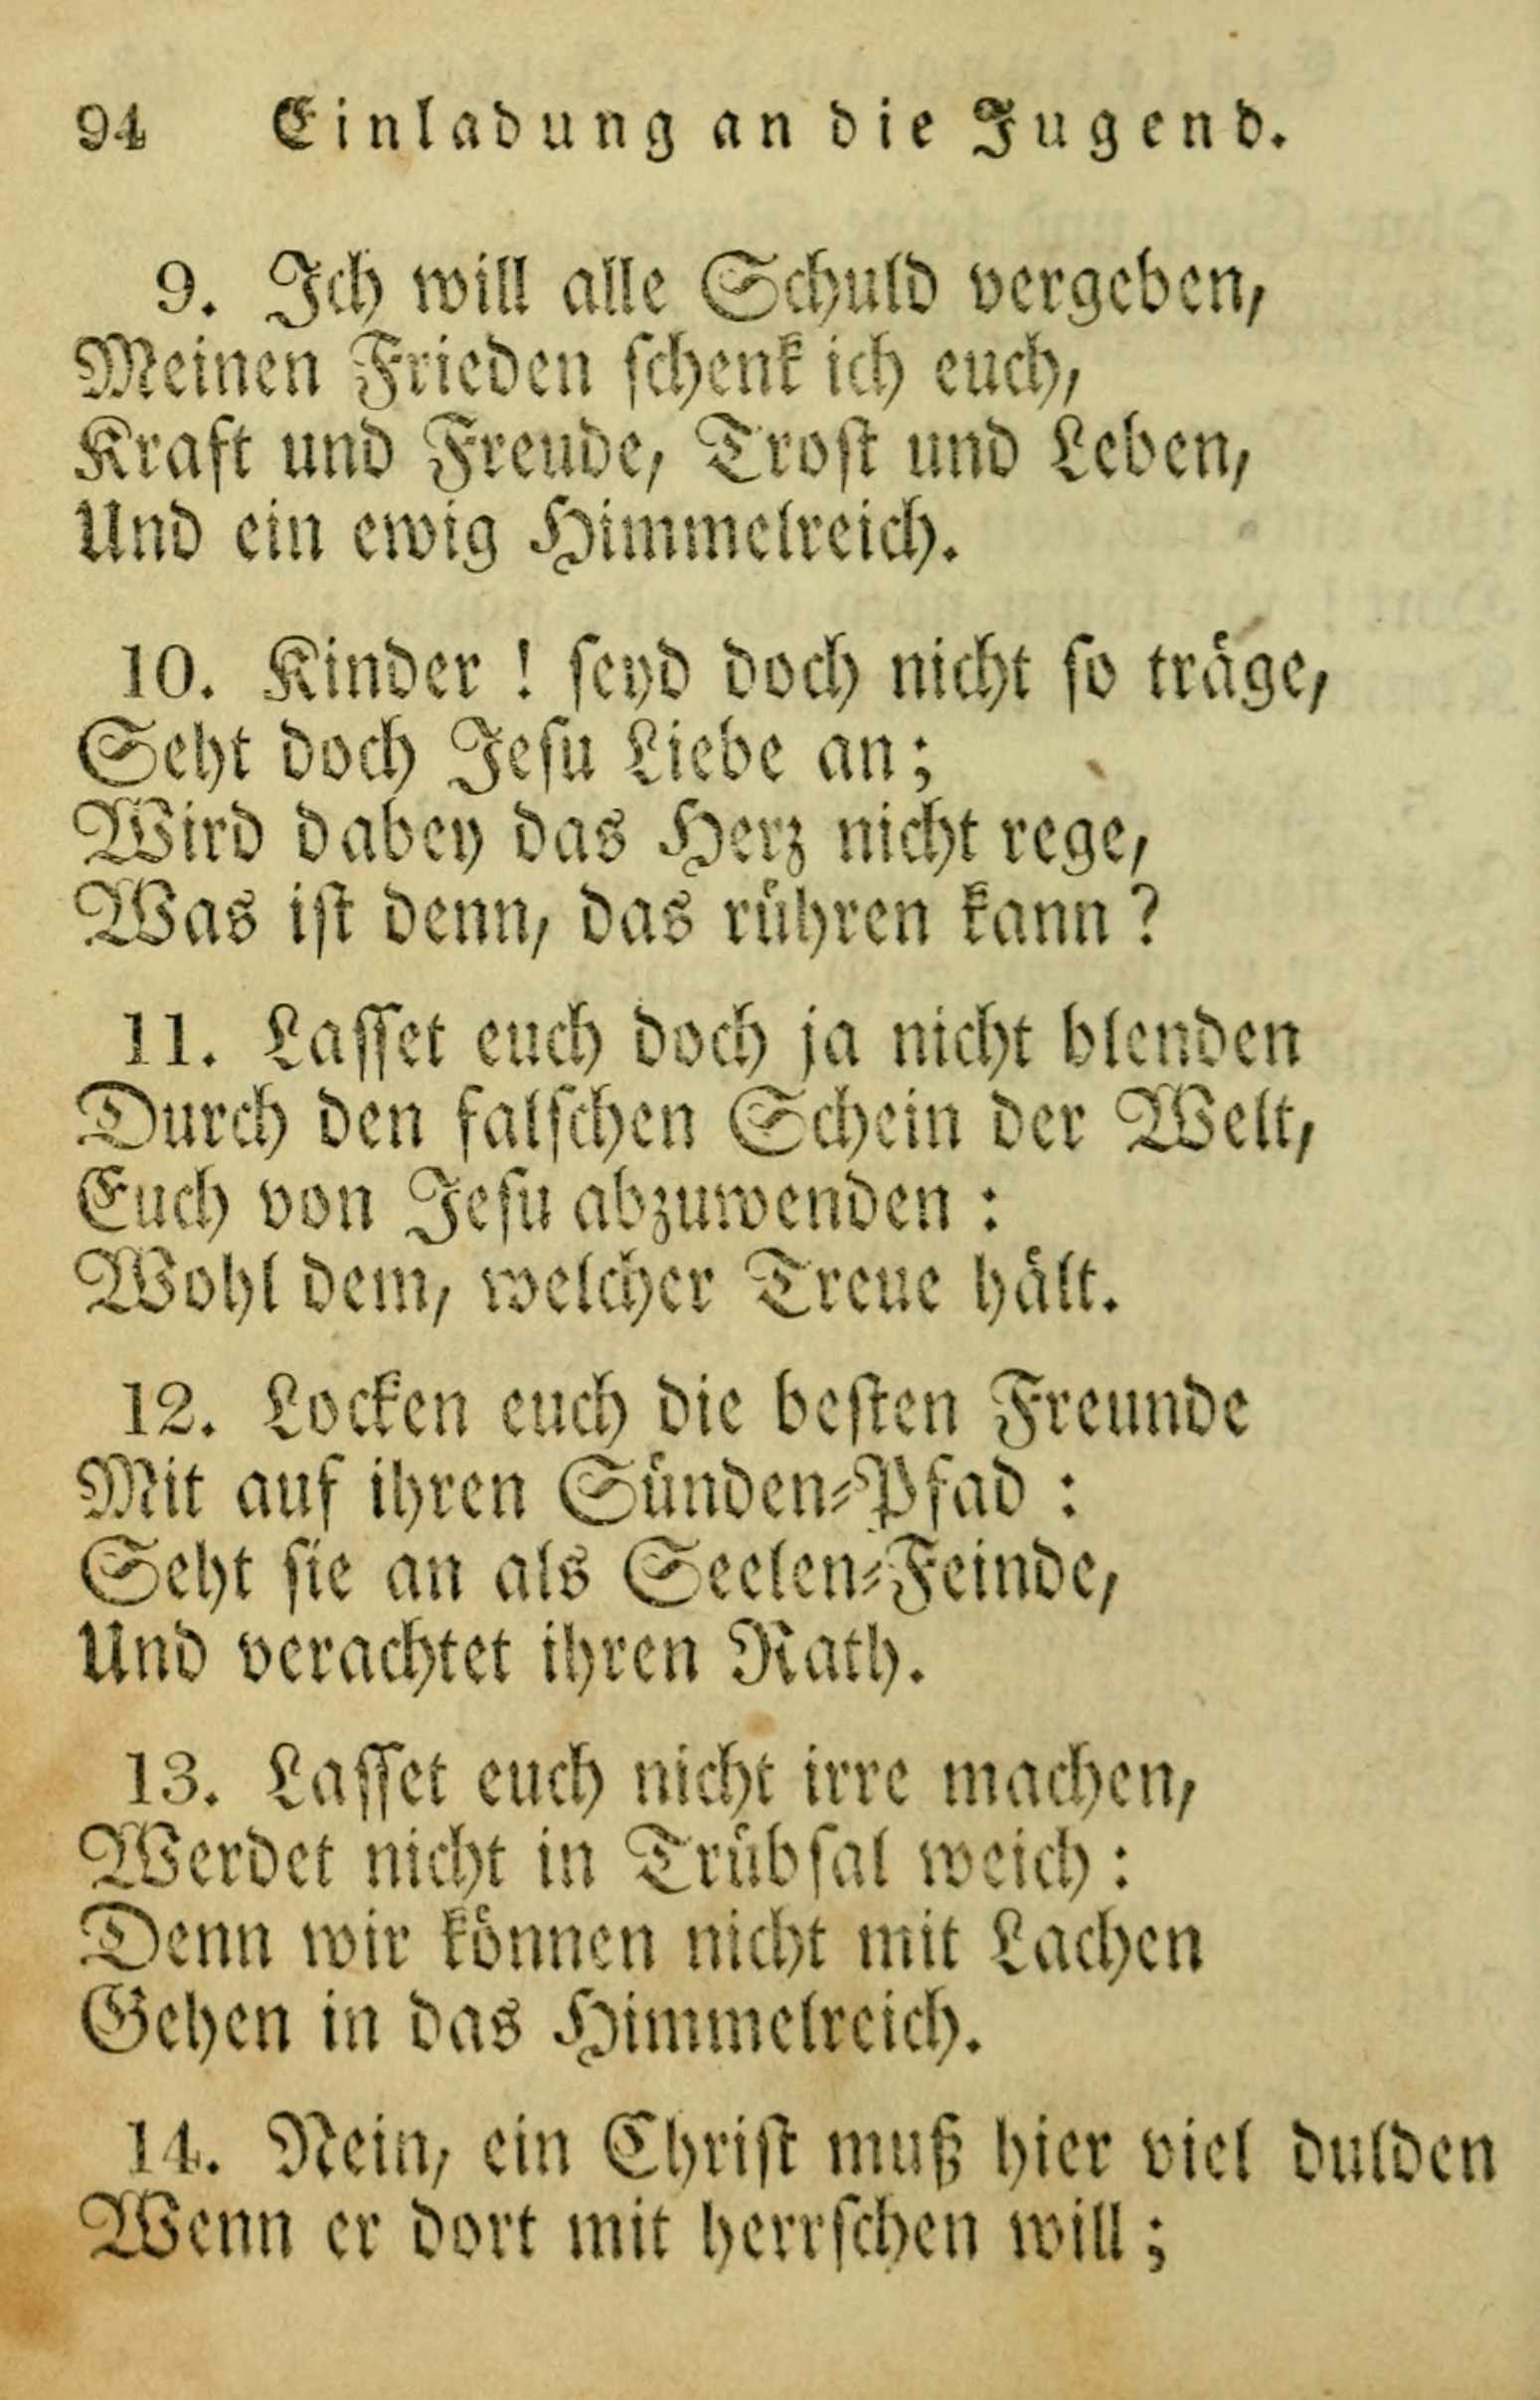 94 Einladung an die Jugend.
9. Ich will alle Schuld vergeben,
Meinen Frieden schenk ich euch,
Kraft und Freude, Trost und Leben,
Und ein ewig Himmelreich.
10. Kinder ! seyd doch nicht so träge,
Seht doch Jesu Liebe an;
Wird dabey das Herz nicht rege,
Was ist denn, das rühren kann?
11. Lasset euch doch ja nicht blenden
Durch den falschen Schein der Welt,
Euch von Jesu abzuwenden :
Wohl dem, welcher Treue hält.
12. Locken euch die besten Freunde
Mit auf ihren Sünden-Pfad :
Seht sie an als Seelen-Feinde,
Und verachtet ihren Rath.
13. Lasset euch nicht irre machen,
Werdet nicht in Trübsal weich :
Denn wir können nicht mit Lachen
Gehen in das Himmelreich.
14. Nein, ein Christ muß hier viel dulden
Wenn er dort mit herrschen will ;